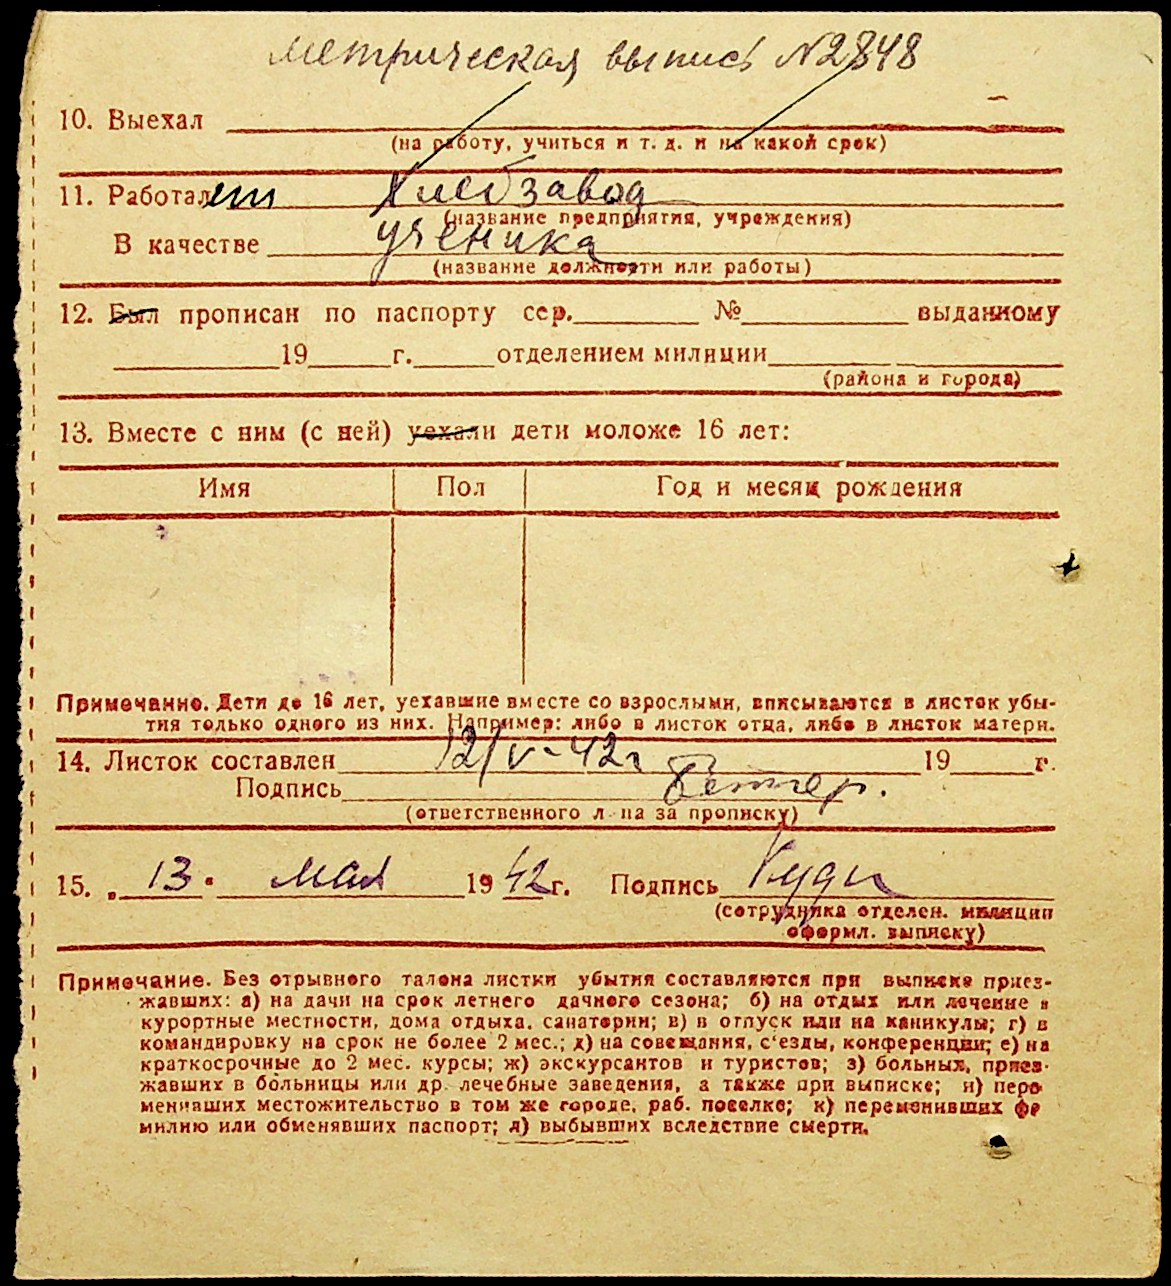 метрическая выпись №2848
10. Выехал
(на работу, учиться и т. д. и на какой срок)
11. Работает Хлебзавод
(название предприятия, учреждения)
В качестве ученика
(название должности или работы)
12. Был прописан по паспорту сер. № выданному
19 г. отделением милиции
(района и города)
13. Вместе с ним (с ней) уехали дети моложе 16 лет:
Имя Пол Год и месяц рождения
Примечание. Дети до 16 лет, уехавшие вместе со взрослыми, вписываются в листок убы-
тия только одного из них. Например: либо в листок отца, либо в листок матери.
14. Листок составлен 12/V-42г 19 г.
Подпись
(ответственного л па за прописку)
15. „ 13 " мая 1942г. Подпись
(сотрудника отделен. милиции
оформл. выписку)
Примечание. Без отрывного талона листки убытия составляются при выписке приез-
жавших: а) на дачи на срок летнего дачного сезона; б) на отдых или лечение в
курортные местности, дома отдыха, санатории; в) в отпуск или на каникулы; г) в
командировку на срок не более 2 мес.; д) на совещания, с‘езды, конференции; е) на
краткосрочные до 2 мес. курсы; ж) экскурсантов и туристов; з) больных, приез-
жавших в больницы или др. лечебные заведения, а также при выписке; и) пере
менивших местожительство в том же городе, раб. поселке; к) переменивших фа
милию или обменявших паспорт; л) выбывших вследствие смерти.